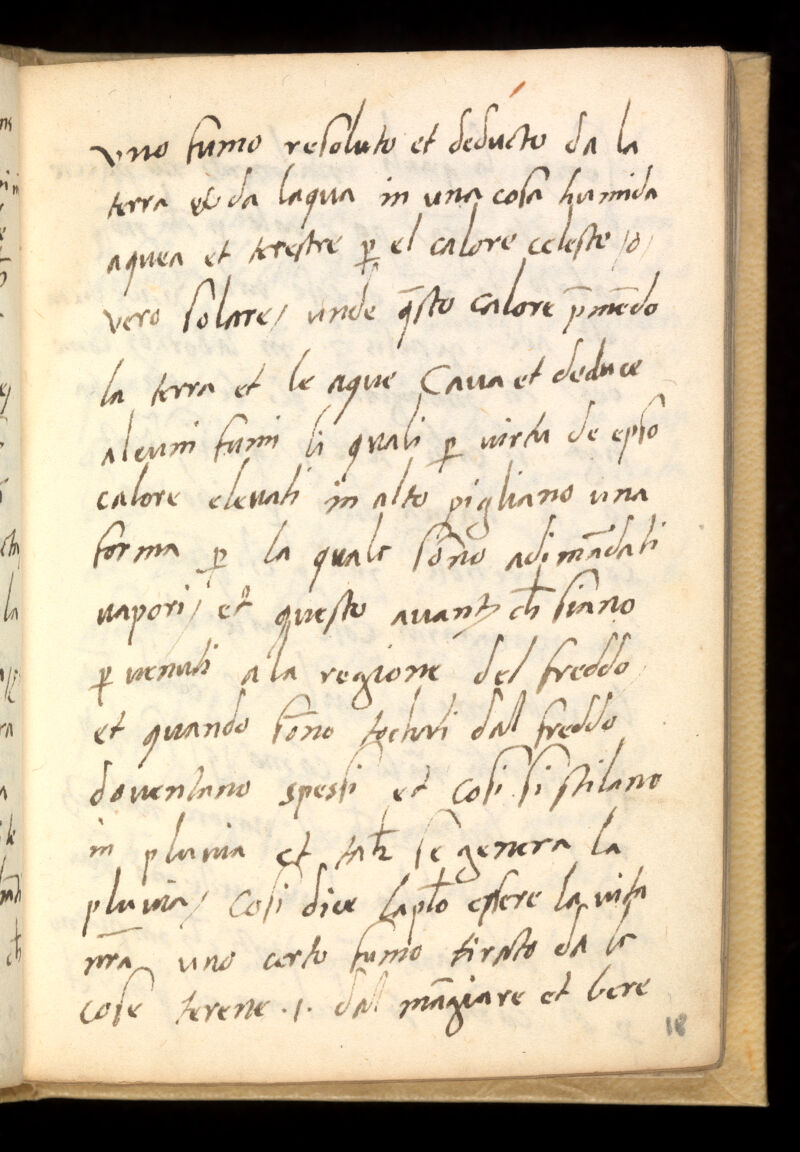 vno fumo resoluto et deducto da la
terra et da laqua in una cosa humida
aquea et terestre p̱ el calore celeste /o/
vero solare/ unde q̄sto calore p̄mēdo
la terra et le aque Caua et deduce
alcuni fumi li quali p̱ uirtu de epso
calore eleuati in alto pigliano una
forma p̱ la quale sōno adimādati
uapori/ et questo auantj ch̄ siano
p̱uenuti a la regione del freddo/
et quando sōno tochati dal freddo
douentano spessi et cosi si stilano
in pluuia et talr̄ se genera la
pluuia/ Cosi dice lapl̄o essere la uita
nr̄a uno certo fumo tirato da le
cose terene .i. dal māgiare et bere
18